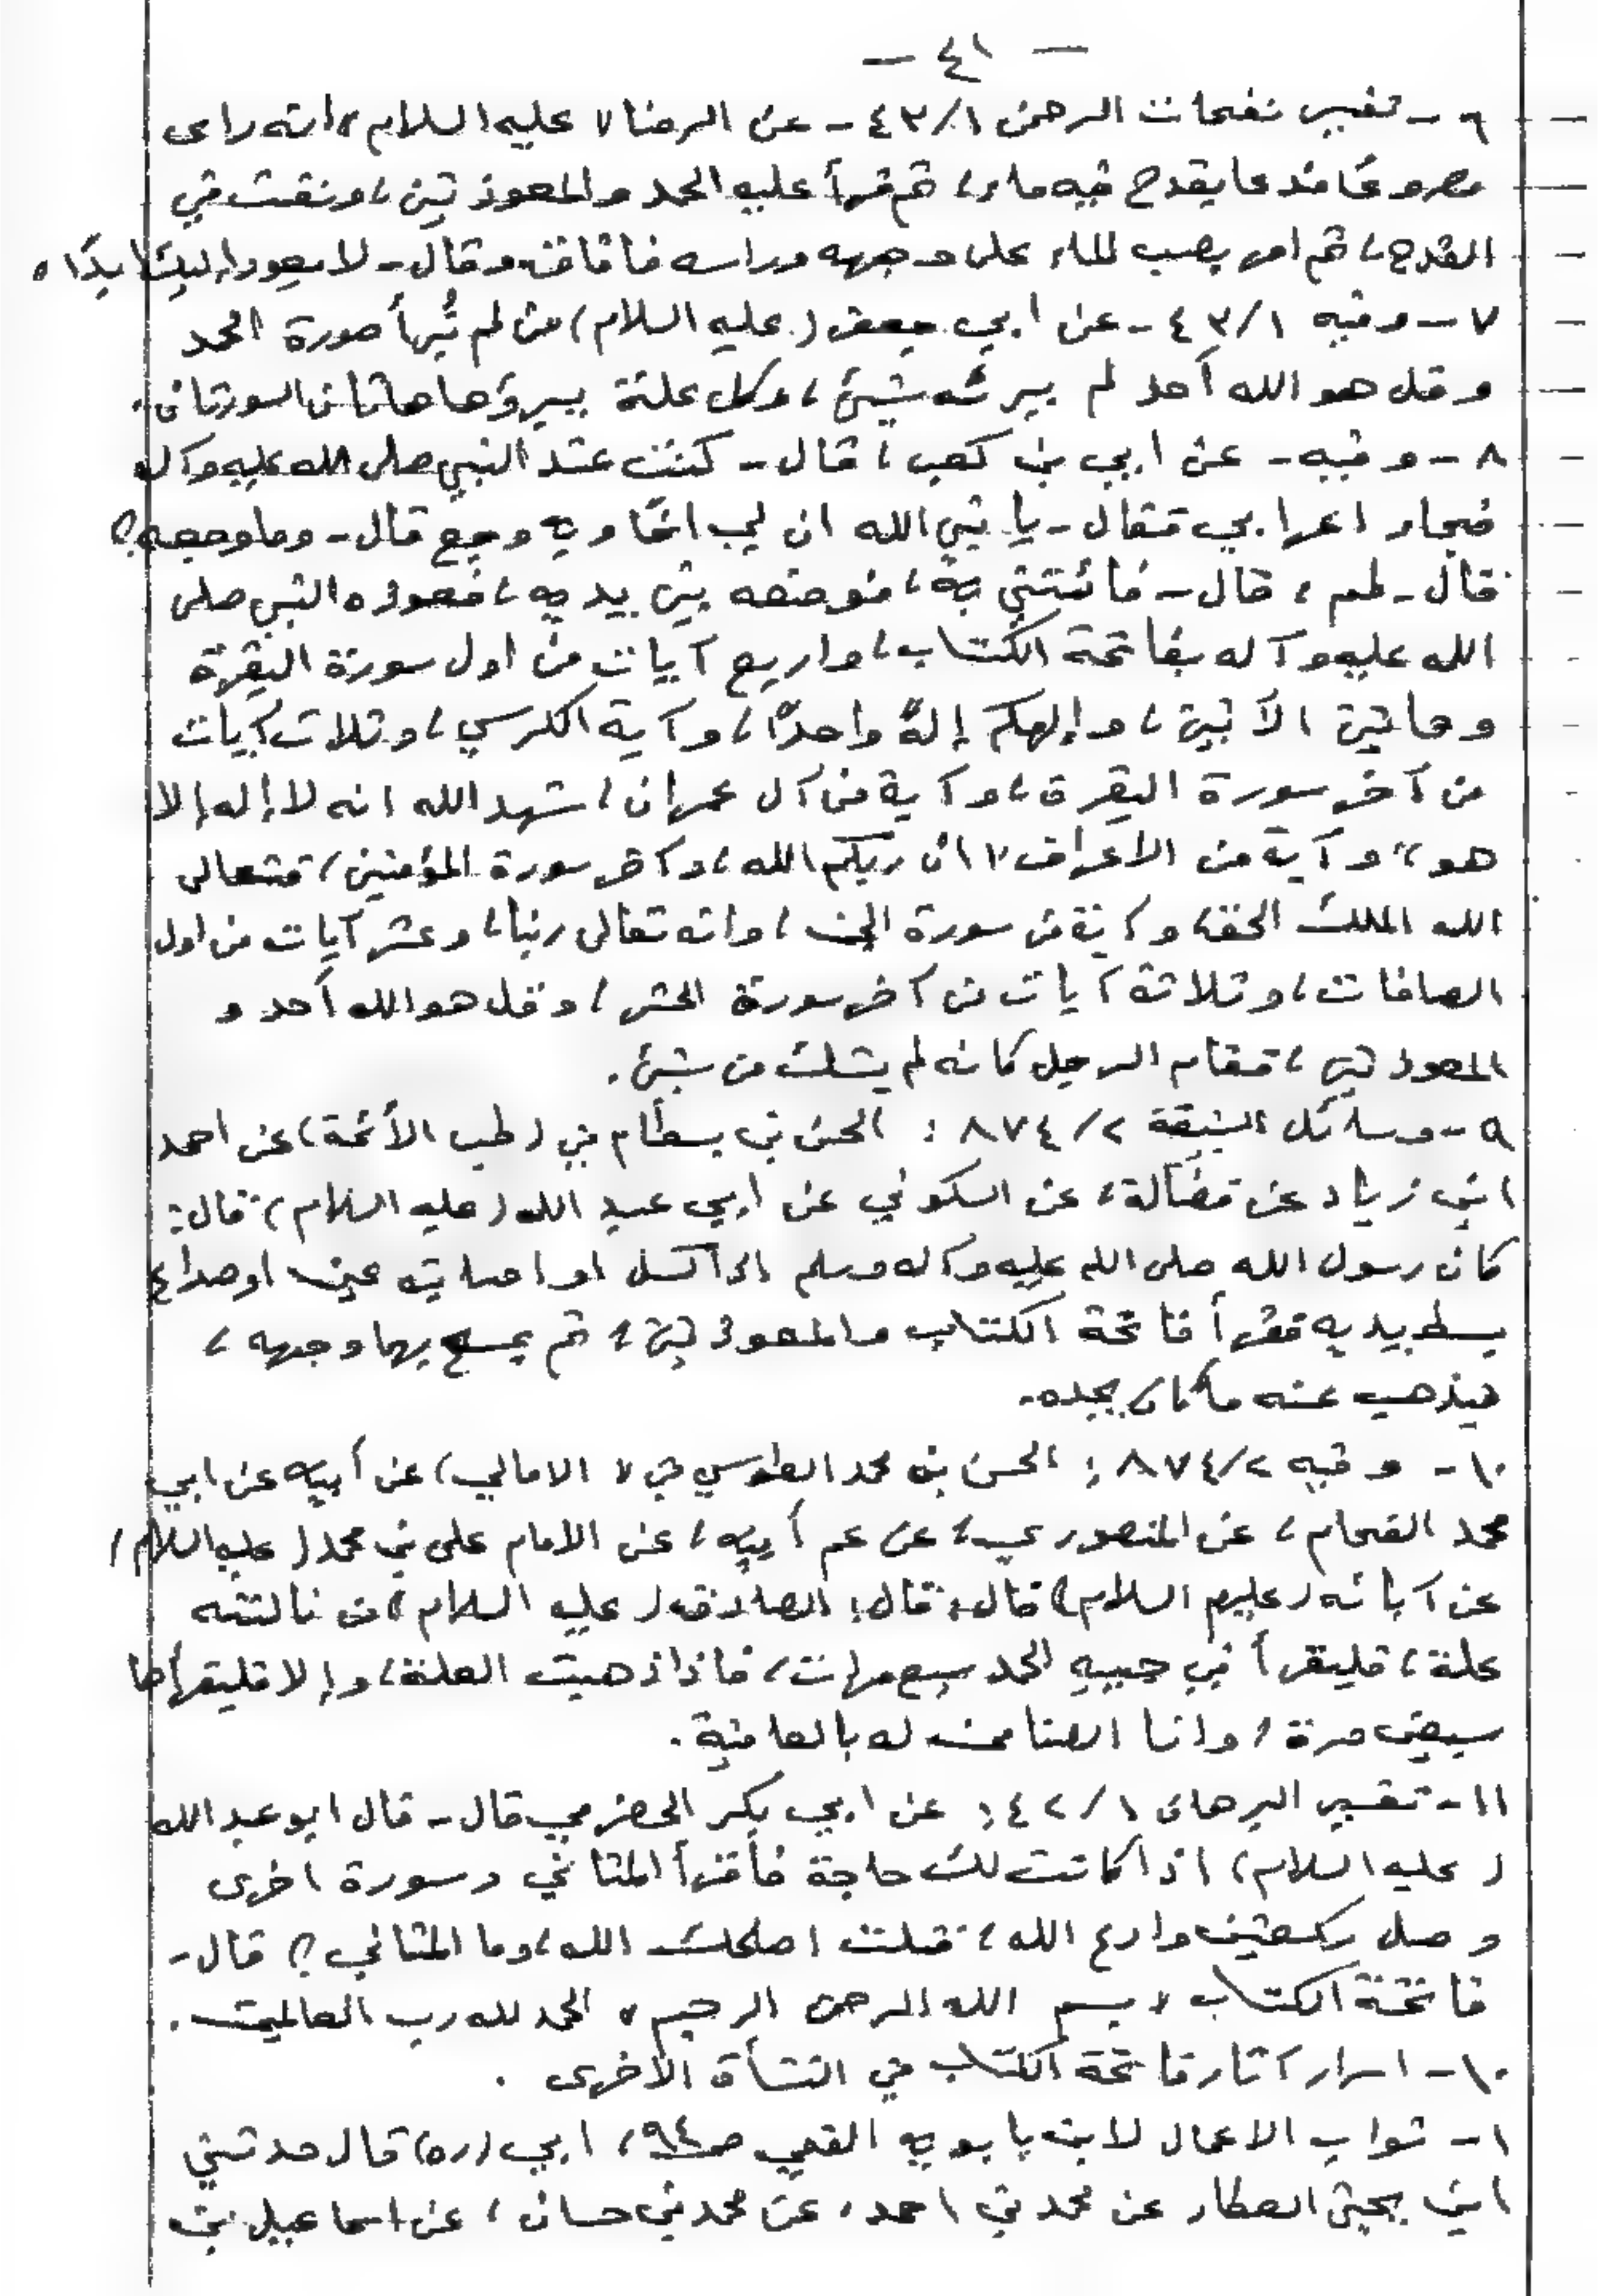 — ٤١ —
٦ - تفسير نفحات الرحمن ٤٣/١ - عن الرضا « عليه السلام » انه رأى
مصروعًا فدعا بقدح فيه ماء ، ثم قرأ عليه الحمد والمعوذتين ، ونفث في
القدح ، ثم امر بصب الماء على وجهه وراسه فافاق وقال - لا يعود إليك ابدًا .
٧ - وفيه ٤٣/١ - عن ابي جعفر ( عليه السلام ) من لم تبرأ صورة الحمد
وقل هو الله أحد لم يبرئه شيئ ، وكل علة يبرؤها هاتان السورتان .
٨ - وفيه - عن ابي بن كعب ، قال - كنت عند النبي صلى الله عليه وآله
فجاء اعرابي فقال - يا نبي الله ان لي اخًا وبه وجع قال - وما وجعه ؟
قال - لمم ، قال - فائتني به ، فوضعه بين يديه ، فعوذه النبي صلى
الله عليه وآله بفاتحة الكتاب ، واربع آيات من اول سورة البقرة
وهاتين الآيتين ، وإلهكم إلهٌ واحدٌ ، وآية الكرسي ، وثلاث آيات
من آخر سورة البقرة ، وآية من آل عمران ، شهد الله انه لا إله إلا
هو ، وآية من الاعراف « ان ربكم الله ، وآخر سورة المؤمنين ، فتعالى
الله الملك الحق ، وآية من سورة الجن ، وانه تعالى ربنا ، وعشر آيات من اول
الصافات ، وثلاثة آيات من آخر سورة الحشر ، وقل هو الله أحد و
المعوذتين ، فقام الرجل كانه لم يشك من شيئ .
٩ - وسائل الشيعة ٨٧٤/٢ : الحسن بن بسطام في ( طب الأئمة ) عن احمد
ابن زياد عن فضالة ، عن السكوني عن ابي عبد الله ( عليه السلام ) قال :
كان رسول الله صلى الله عليه وآله وسلم اذا كسل او اصابته عين او صداع
بسط يديه فقرأ فاتحة الكتاب والمعوذتين ، ثم يمسح بهما وجهه ،
فيذهب عنه ما كان يجده .
١٠ - وفيه ٨٧٤/٢ : الحسن بن محمد الطوسي في « الامالي ) عن أبيه عن ابي
محمد الفحام ، عن المنصوري ، عن عم أبيه ، عن الامام علي بن محمد ( عليه السلام )
عن آبائه ( عليهم السلام ) قال : قال : الصادق ( عليه السلام ) من نالته
علة ، فليقرأ في جيبه الحمد سبع مرات ، فاذا ذهبت العلة ، وإلا فليقرأها
سبعين مرة ، وانا الضامن له بالعافية .
١١ - تفسير البرهان ٤٢/١ : عن ابي بكر الحضرمي قال - قال ابو عبد الله
( عليه السلام ) اذا كانت لك حاجة فأقرأ المثاني وسورة اخرى
وصل ركعتين وادع الله ، فقلت اصلحك الله ، وما المثاني ؟ قال -
فاتحة الكتاب « بسم الله الرحمن الرحيم » الحمد لله رب العالمين .
١٠ - اسرار آثار فاتحة الكتاب في النشأة الأخرى .
١ - ثواب الاعمال لابن بابويه القمي ص ٩٤ ، ابي (ره) قال حدثني
ابن يحيى العطار عن محمد بن احمد ، عن محمد بن حسان ، عن اسماعيل بن